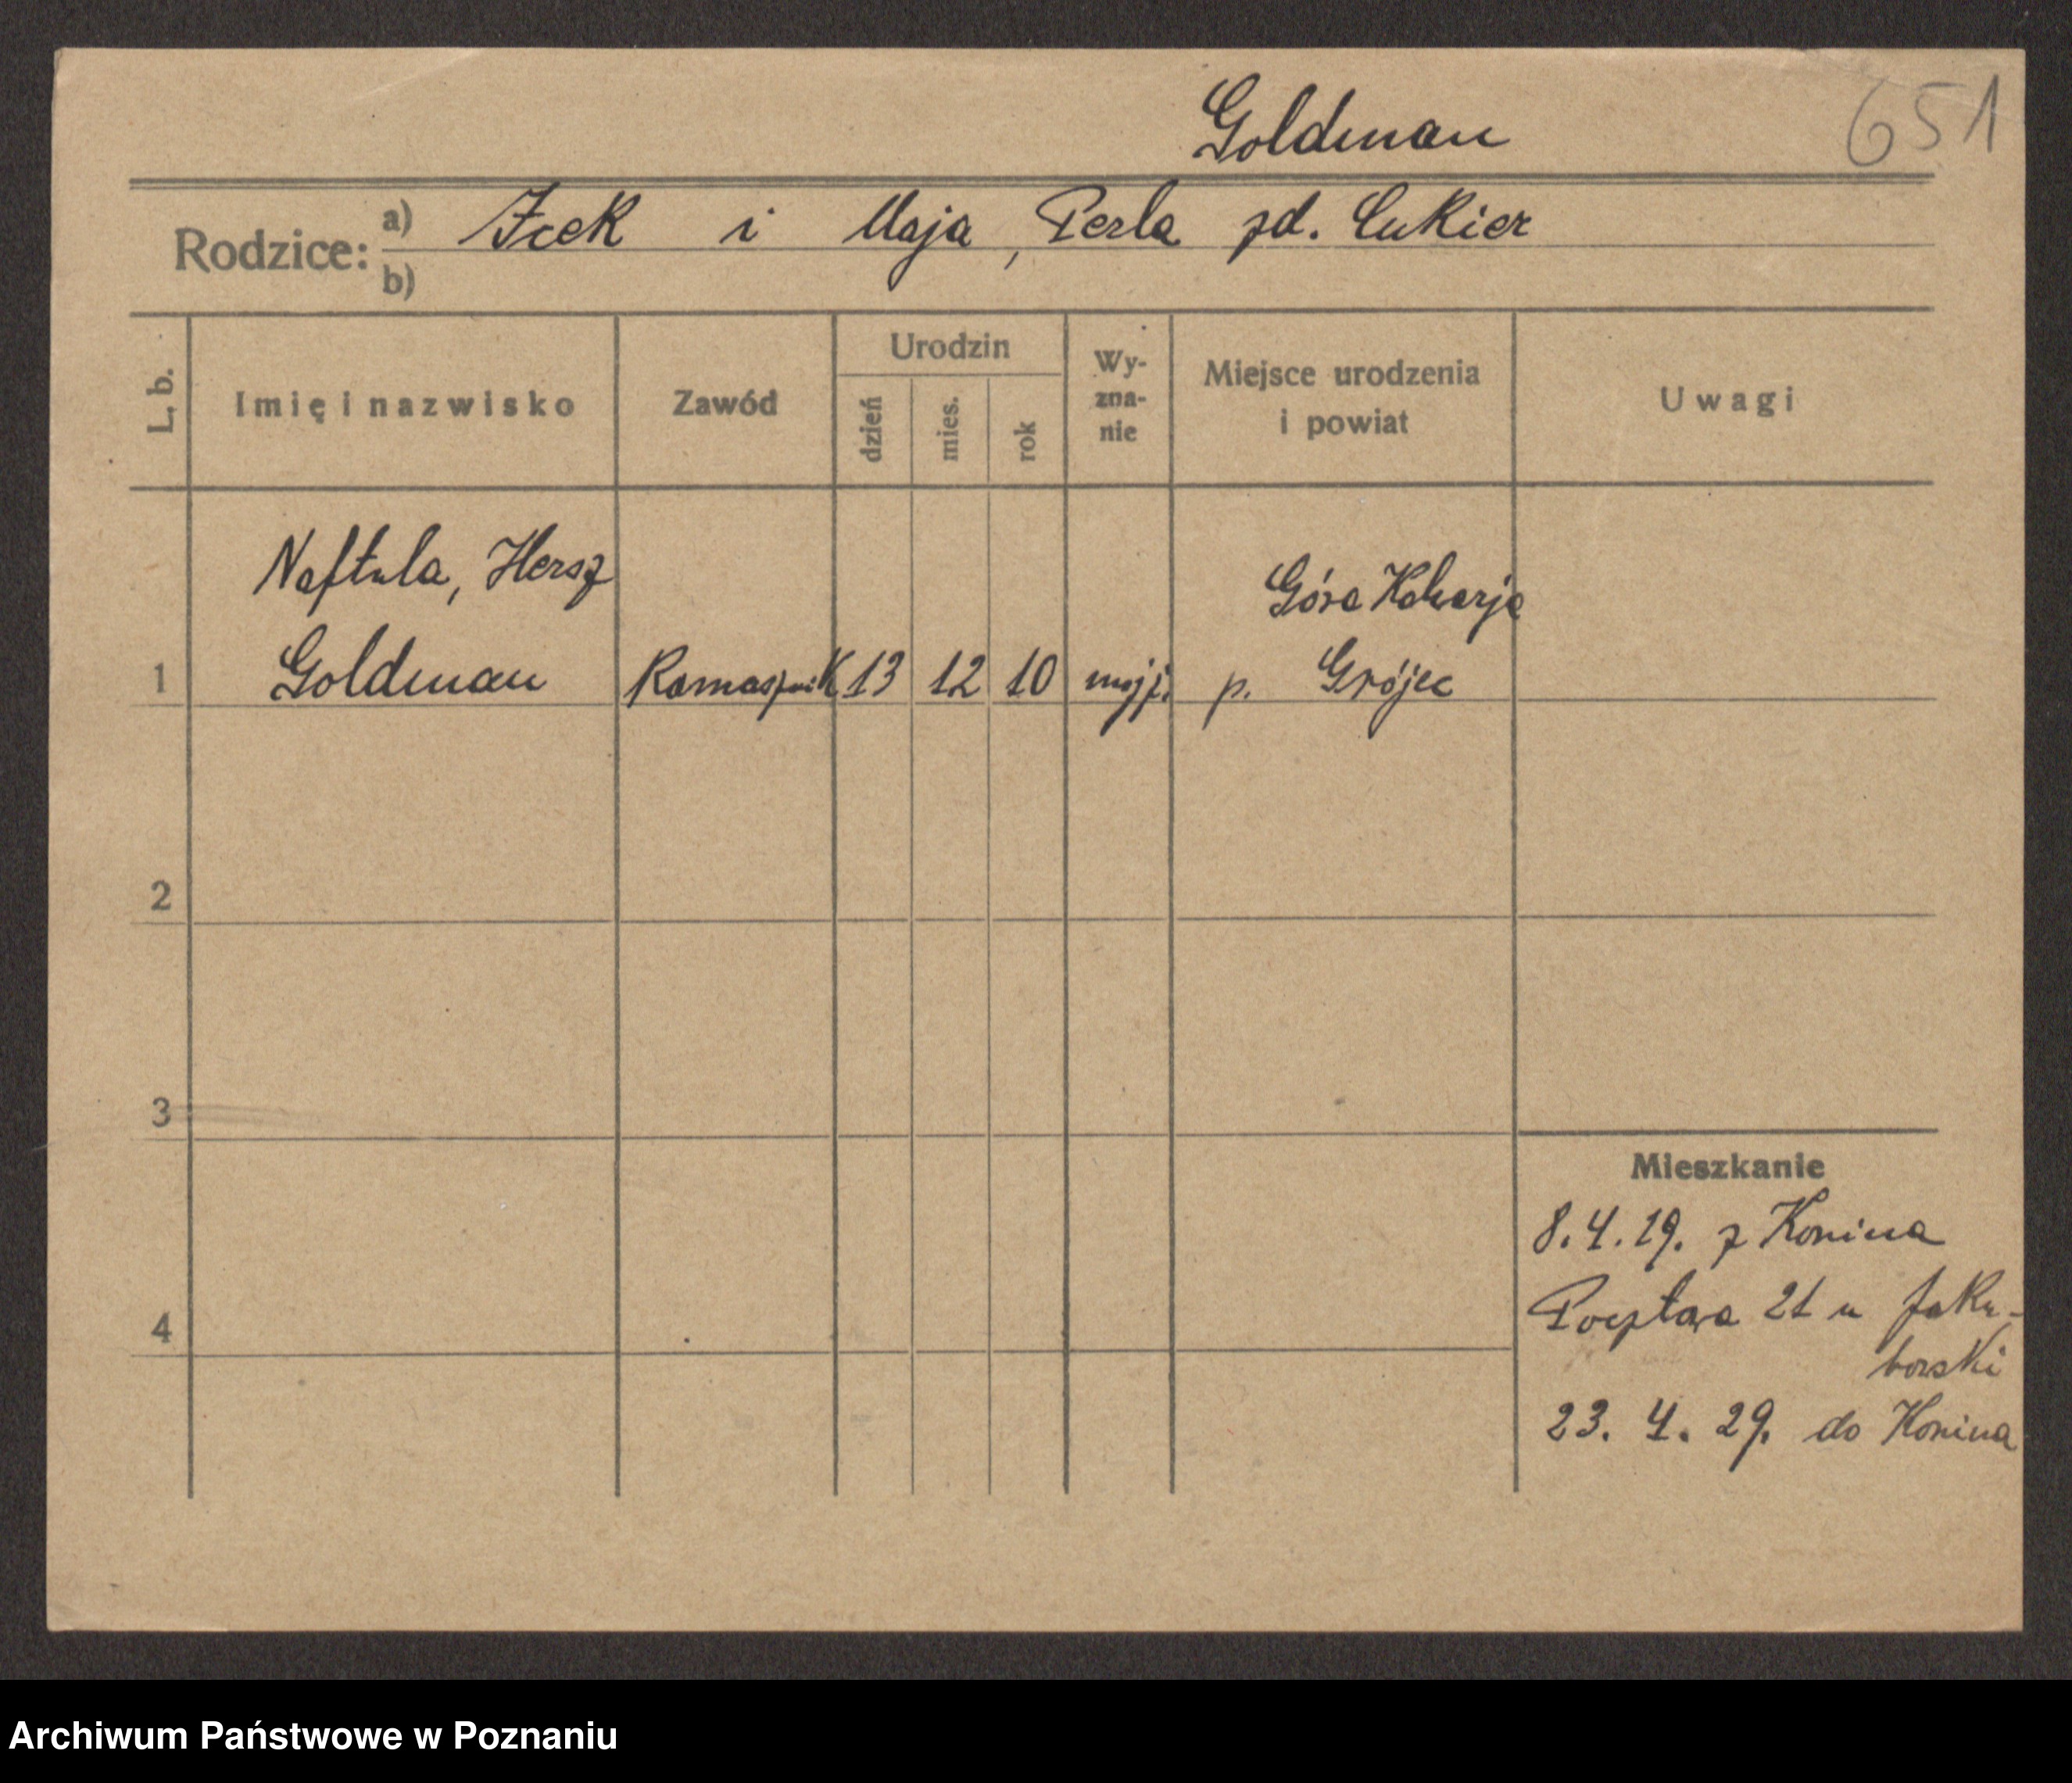 Goldman
651
Rodzice: a) Icek i Maja, Perla zd. Cukier
b)
L. b.
Imię i nazwisko
Zawód
Urodzin
dzień
mies.
rok
Wy-
zna-
nie
Miejsce urodzenia
i powiat
Uwagi
Naftula, Hersz
Góra Kalwarja
1 Goldman Kamasznik 13 12 10 mojż. p. Grójec
2
3
4
Mieszkanie
8.4.29. z Konina
Pocztowa 21 u Jaku-
borski
23. 4. 29. do Konina
Archiwum Państwowe w Poznaniu